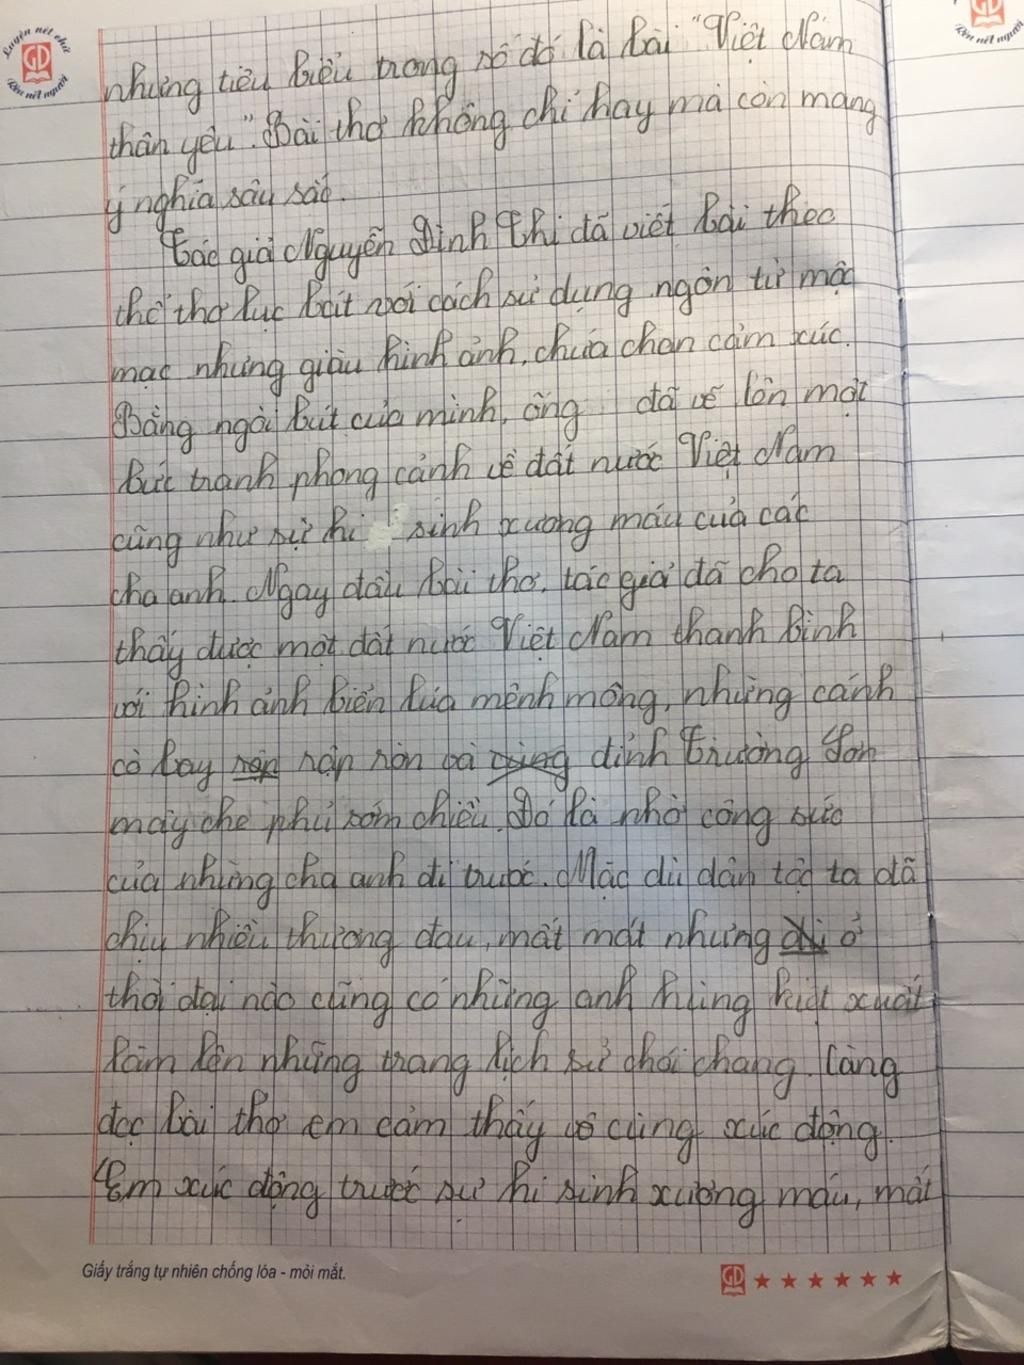 Luyện nét chữ
GD
Rèn nết người
GD
Rèn nết người
nhưng tiêu biểu trong số đó là bài "Việt Nam
thân yêu". Bài thơ không chỉ hay mà còn mang
ý nghĩa sâu sắc.
Tác giả Nguyễn Đình Thi đã viết bài theo
thể thơ lục bát với cách sử dụng ngôn từ mộc
mạc nhưng giàu hình ảnh, chứa chan cảm xúc.
Bằng ngòi bút của mình, ông đã vẽ lên một
bức tranh phong cảnh về đất nước Việt Nam
cũng như sự hi sinh xương máu của các
cha anh. Ngay đầu bài thơ, tác giả đã cho ta
thấy được một đất nước Việt Nam thanh bình
với hình ảnh biển lúa mênh mông, những cánh
cò bay rập rờn và đỉnh Trường Sơn
mây che phủ sớm chiều. Đó là nhờ công sức
của những cha anh đi trước. Mặc dù dân tộc ta đã
chịu nhiều thương đau, mất mát nhưng ở
thời đại nào cũng có những anh hùng kiệt xuất
làm lên những trang lịch sử chói chang. Càng
đọc bài thơ em cảm thấy vô cùng xúc động.
Em xúc động trước sự hi sinh xương máu, mất
Giấy trắng tự nhiên chống lóa - mỏi mắt.
GD